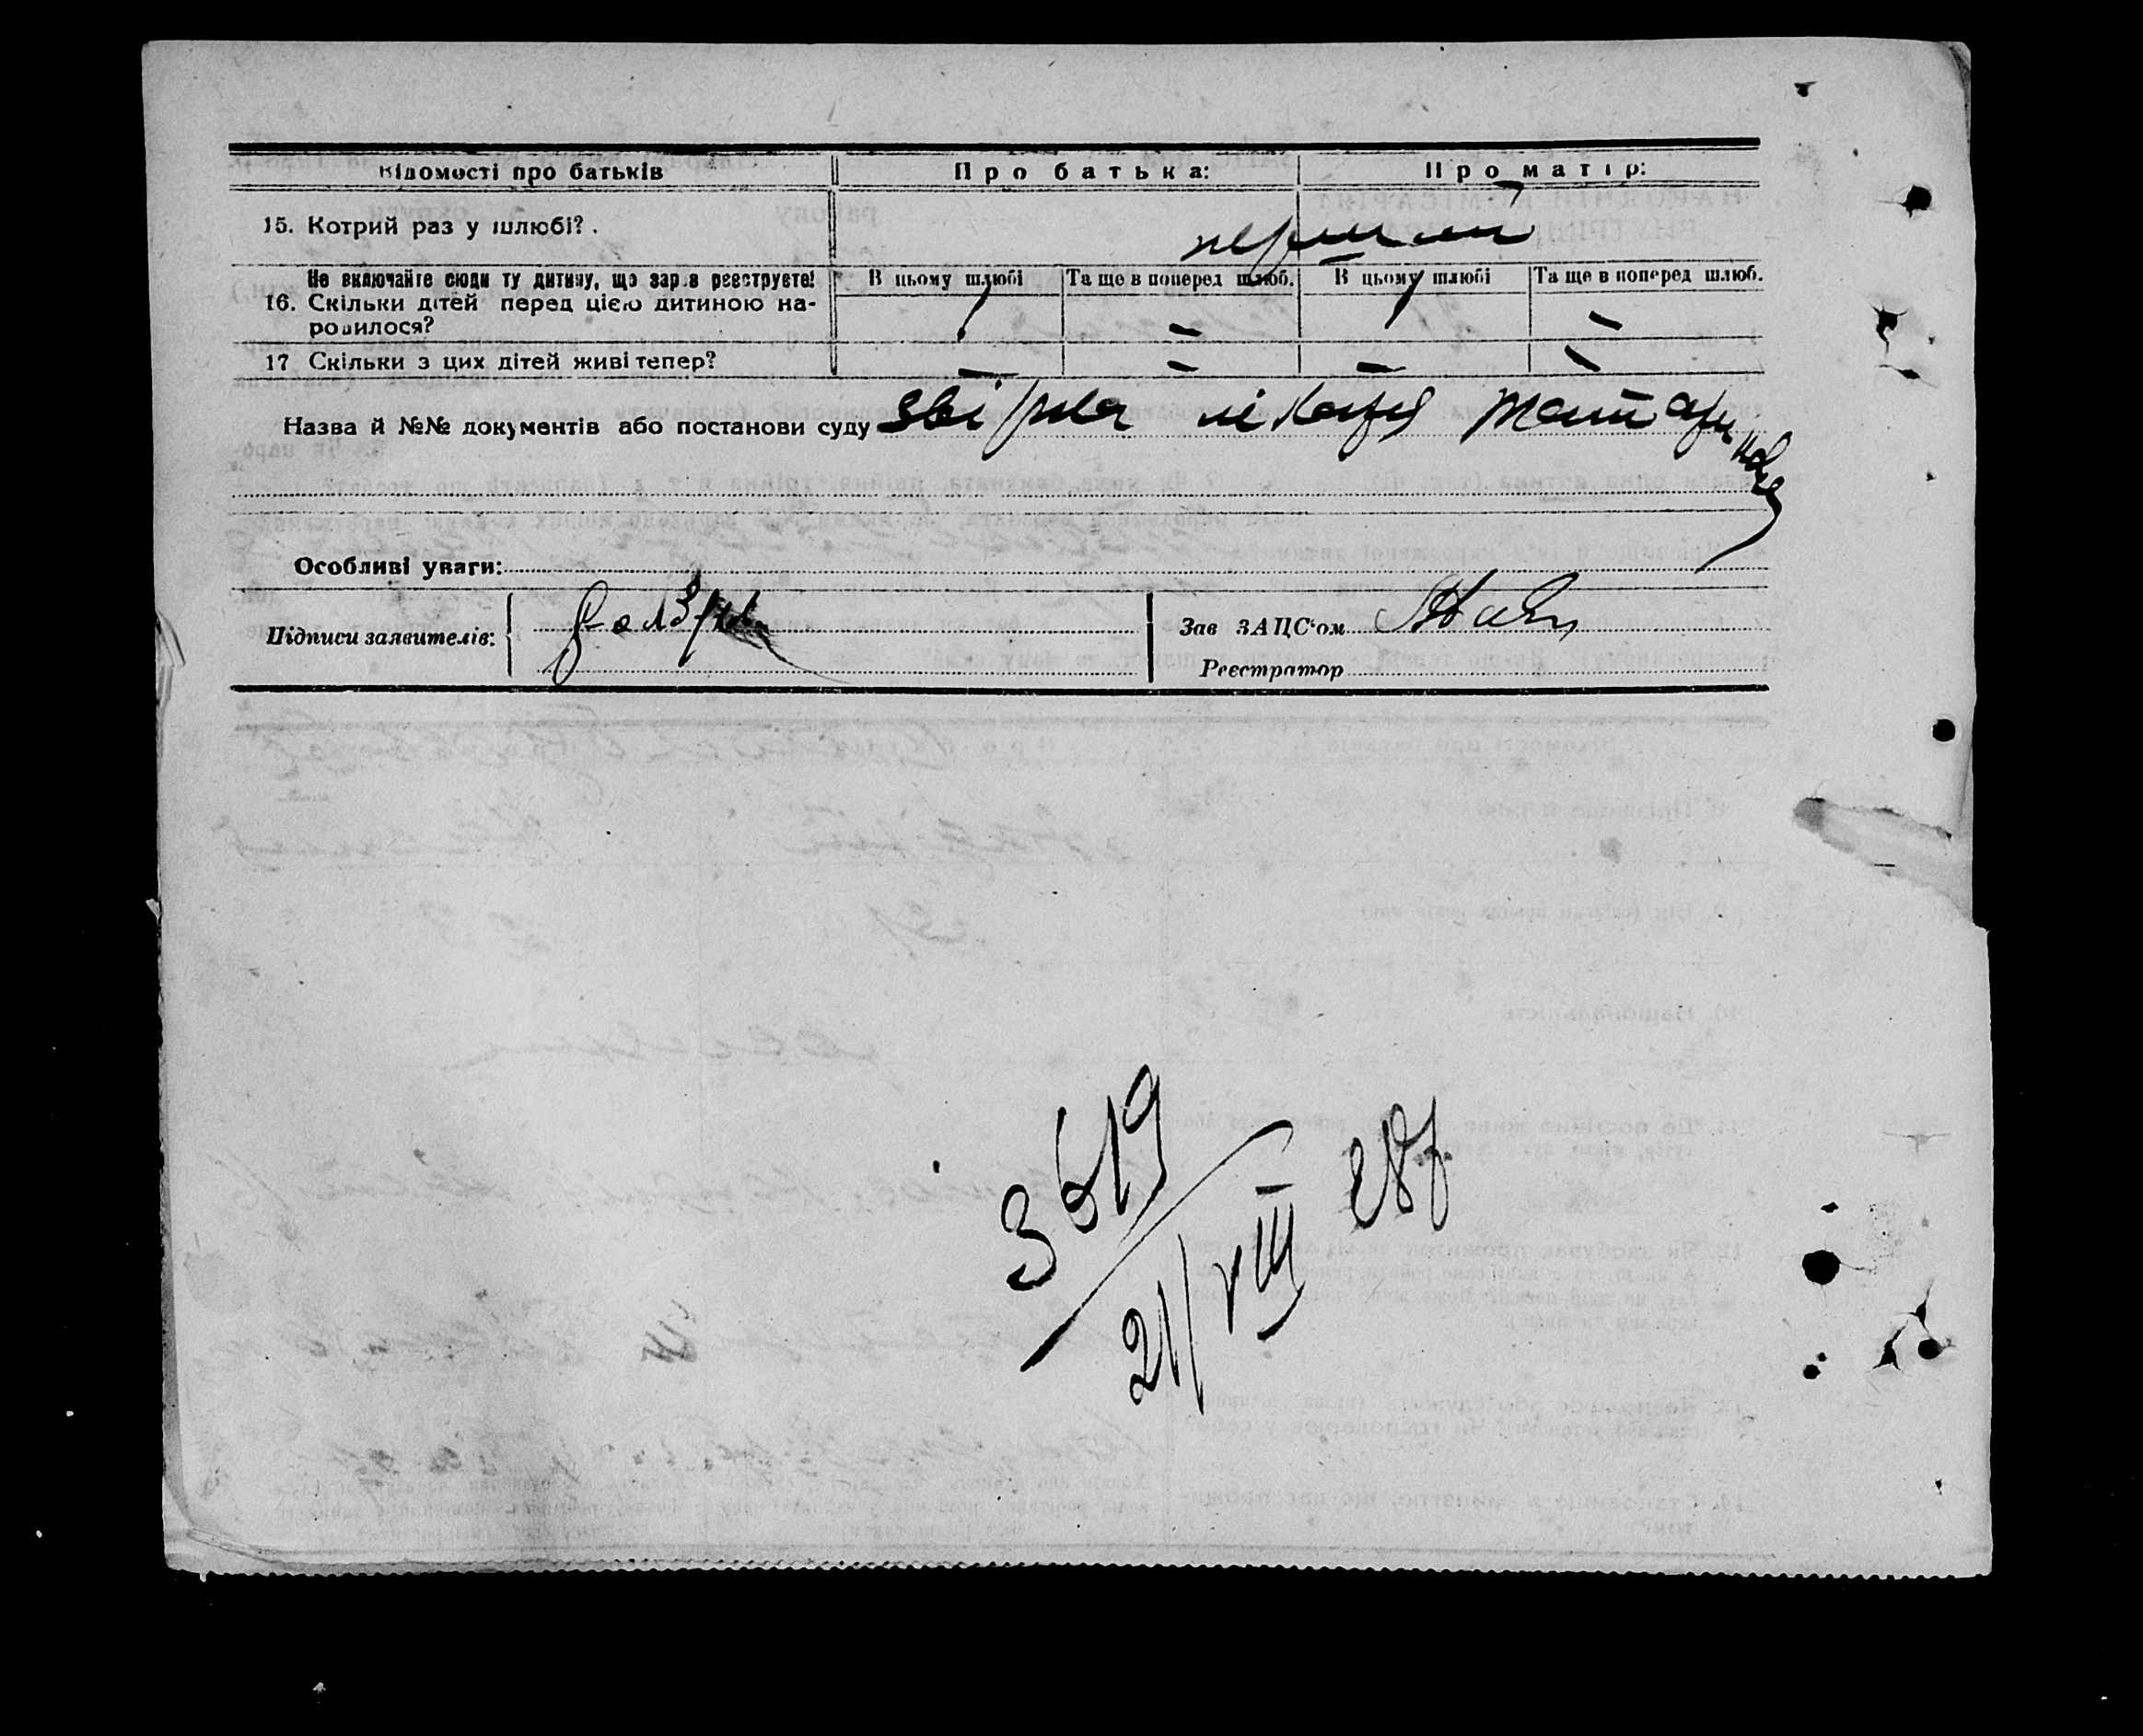 Відомості про батьків Про батька: Про матір:
15. Котрий раз у шлюбі? . перший
Не включайте сюди ту дитину, що зараз реєструєте! В цьому шлюбі Та ще в поперед шлюб. В цьому шлюбі Та ще в поперед шлюб.
16. Скільки дітей перед цією дитиною на-
родилося? 1 – 1 –
17 Скільки з цих дітей живі тепер? – – – –
Назва й №№ документів або постанови суду
Особливі уваги:
Підписи заявителів:
Зав ЗАЦС'ом
Реєстратор
3619
21/VIII 28р